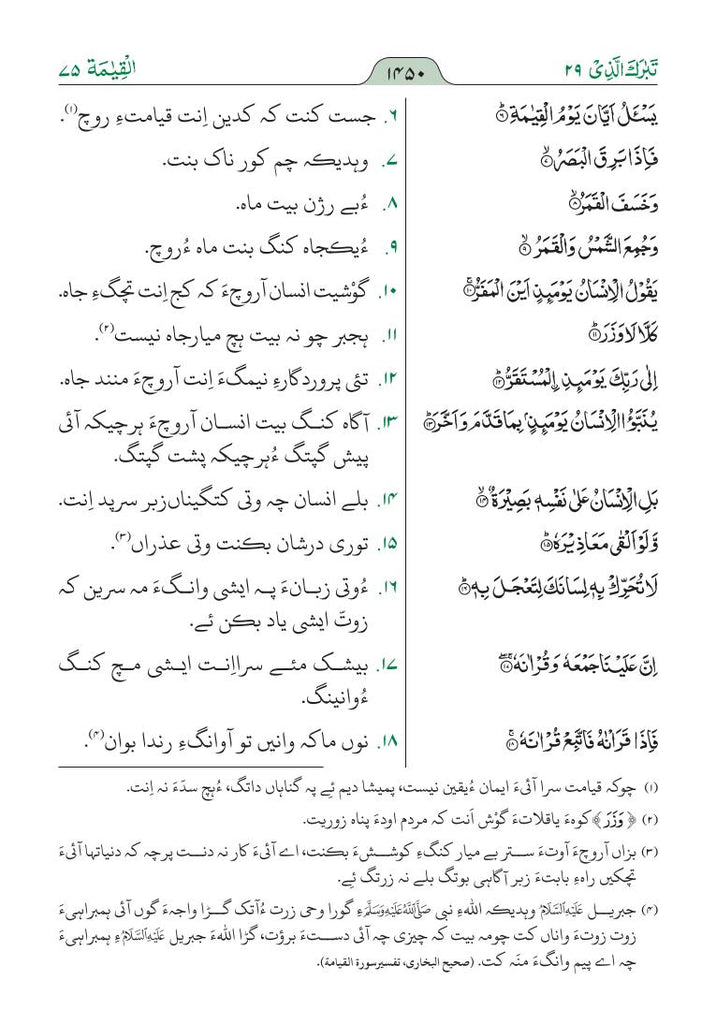 تَبٰرَكَ الَّذِىْ ۲۹
۱۴۵۰
الْقِيٰمَة ۷۵
يَسْـَٔلُ اَيَّانَ يَوْمُ الْقِيٰمَةِ ۶
۶. جست کنت کہ کدین اِنت قیامتءِ روچ(۱).
فَاِذَا بَرِقَ الْبَصَرُ ۷
۷. وہدیکہ چم کور ناک بنت.
وَخَسَفَ الْقَمَرُ ۸
۸. ءُبے رژن بیت ماہ.
وَجُمِعَ الشَّمْسُ وَالْقَمَرُ ۹
۹. ءُیکجاہ کنگ بنت ماہ ءُروچ.
يَقُوْلُ الْاِنْسَانُ يَوْمَىِٕذٍ اَيْنَ الْمَفَرُّ ۱۰
۱۰. گوْشیت انسان آروچءَ کہ کج اِنت تچگءِ جاہ.
كَلَّا لَا وَزَرَ ۱۱
۱۱. ہجبر چو نہ بیت ہچ میارجاہ نیست(۲).
اِلٰى رَبِّكَ يَوْمَىِٕذِ ۨالْمُسْتَقَرُّ ۱۲
۱۲. تئی پروردگارءِ نیمگءَ اِنت آروچءَ منند جاہ.
يُنَبَّؤُا الْاِنْسَانُ يَوْمَىِٕذٍۢ بِمَا قَدَّمَ وَاَخَّرَ ۱۳
۱۳. آگاہ کنگ بیت انسان آروچءَ ہرچیکہ آئی
پیش گپتگ ءُہرچیکہ پشت گپتگ.
بَلِ الْاِنْسَانُ عَلٰى نَفْسِهٖ بَصِيْرَةٌ ۱۴
۱۴. بلے انسان چہ وتی کتگیناں زبر سرپد اِنت.
وَّلَوْ اَلْقٰى مَعَاذِيْرَهٗ ۱۵
۱۵. توری درشان بکنت وتی عذراں(۳).
لَا تُحَرِّكْ بِهٖ لِسَانَكَ لِتَعْجَلَ بِهٖ ۱۶
۱۶. ءُوتی زبانءَ پہ ایشی وانگءَ مہ سرین کہ
زوتّ ایشی یاد بکن ئے.
اِنَّ عَلَيْنَا جَمْعَهٗ وَقُرْاٰنَهٗ
۱۷. بیشک مئے سرا اِنت ایشی مچ کنگ
ءُوانینگ.
فَاِذَا قَرَاْنٰهُ فَاتَّبِعْ قُرْاٰنَهٗ
۱۸. نوں ماکہ وانیں تو آوانگءِ رندا بوان(۴).
(۱) چوکہ قیامت سرا آئیءَ ایمان ءُیقین نیست، پمیشا دیم ئے پہ گناہاں داتگ، ءُہچ سدّءَ نہ اِنت.
(۲) ﴿وَزَرَ﴾ کوہءَ یاقلاتءَ گوْش اَنت کہ مردم اودءَ پناہ زوریت.
(۳) بزاں آروچءَ آوتءَ ستر بے میار کنگءِ کوششءَ بکنت، اے آئیءَ کار نہ دنت پرچہ کہ دنیاتہا آئیءَ
تچکیں راہءِ بابتءَ زبر آگاہی بوتگ بلے نہ زرتگ ئے.
(۴) جبریل عَلَيْهِ السَّلَامُ وہدیکہ اللهءِ نبی صَلَّى اللهُ عَلَيْهِ وَسَلَّمَءِ گورا وحی زرت ءُآتک گڑا واجہءَ گوں آئی ہمبراہیءَ
زوت زوتءَ واناں کت چومہ بیت کہ چیزی چہ آئی دستءَ برؤت، گڑا اللهءَ جبریل عَلَيْهِ السَّلَامُءِ ہمبراہیءَ
چہ اے پیم وانگءَ منَہ کت. (صحیح البخاری، تفسیرسورة القیامة).